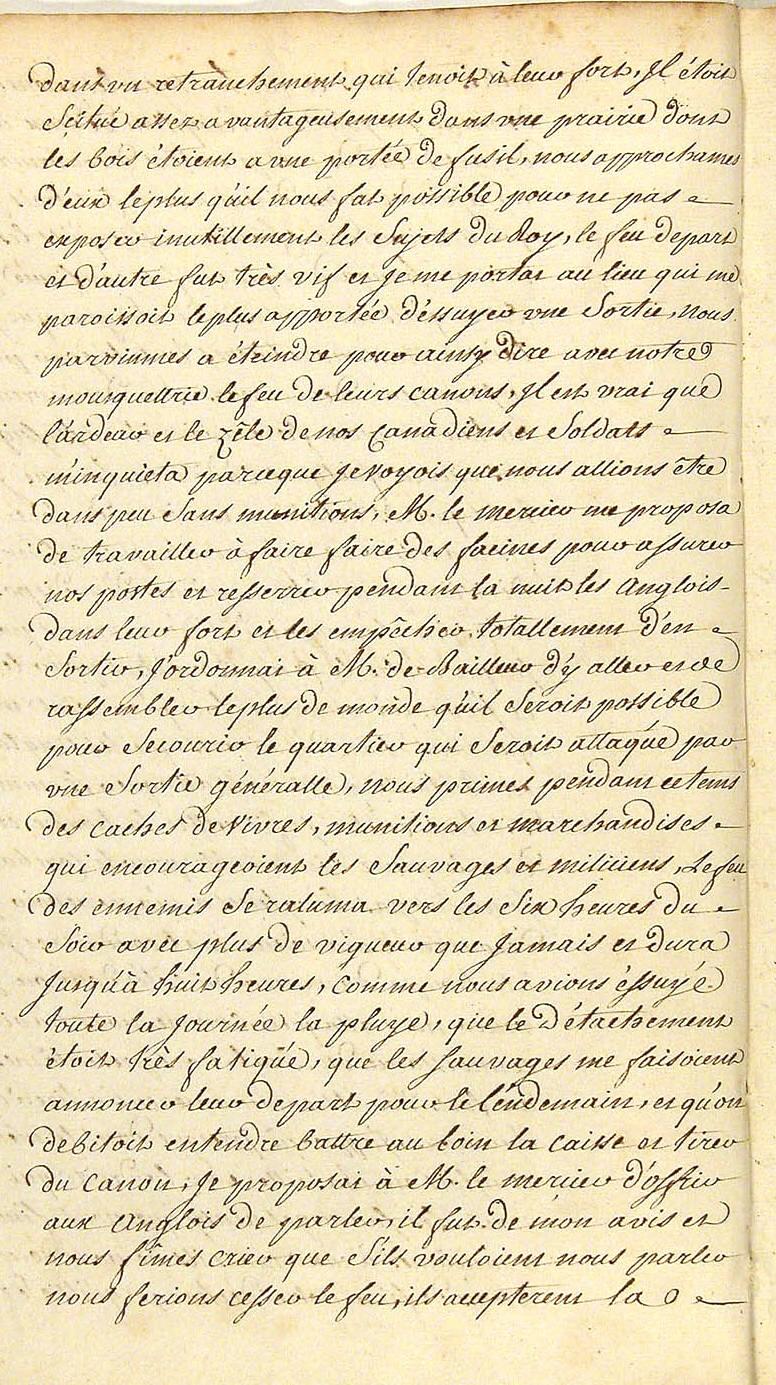 dans un retranchement qui tenoit à leur fort, Il étoit
Scitué assez avantageusement dans une prairie dont
les bois étoient a une portée de fusil, nous approchames
d'eux le plus qu'il nous fut possible pour ne pas
exposer inutillement les Sujets du Roy, le feu depart
et d'autre fut très vif et je me portai au lieu qui me
paroissoit le plus apportée d'éssuyer une Sortie, nous
parvinmes a éteindre pour ainsy dire avec notre
mousquettrie le feu de leurs canons, Il est vrai que
l'ardeur et le zêle de nos Canadiens et Soldats
m'inquieta parceque Je voyois que nous allions être
dans peu Sans munitions, M. le mercier me proposa
de travailler à faire faire des facines pour assurer
nos postes et resserrer pendant la nuit les Anglois
dans leur fort et les empêcher totallement d'en
Sortir, J'ordonnai à M. de Bailleur d'y aller et de
rassembler le plus de monde qu'il Seroit possible
pour Secourir le quartier qui Seroit attaqué par
une Sortie généralle, nous primes pendant ce tems
des caches de Vivres, munitions et marchandises
qui encourageoient les Sauvages et miliciens, Le feu
des ennemis Se raluma vers les Six heures du
Soir avec plus de vigueur que Jamais et dura
Jusqu'à huit heures, Comme nous avions éssuyé
toute la Journée la pluye, que le Détachement
étoit très fatigué, que les Sauvages me faisoient
annoncer leur depart pour le lendemain, et qu'on
debitoit entendre battre au loin la caisse et tirer
du Canon, Je proposai à M. le mercier d'offrir
aux Anglois de parler, il fut de mon avis et
nous fîmes crier que S'ils vouloient nous parler
nous ferions cesser le feu, ils accepterent la